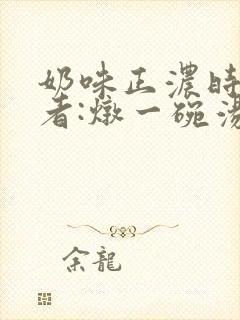 奶味正濃時
者:燉一碗湯
余龍